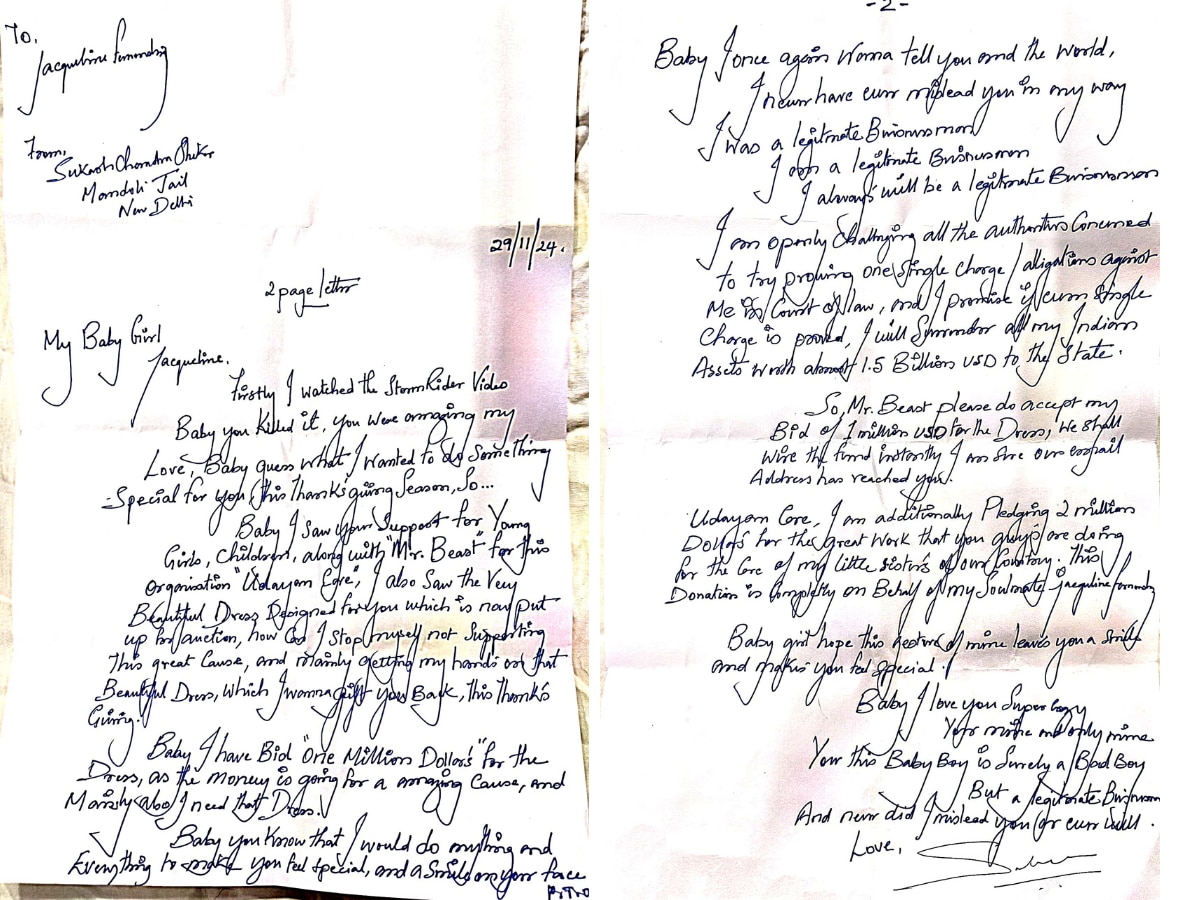 To,
Jacqueline Fernandez
From,
Sukash Chandra Shekar
Mandoli Jail
New Delhi
29/11/24.
2 page letter
My Baby Girl
Jacqueline.
Firstly I watched the StormRider Video
Baby you killed it, you were amazing my
Love, Baby guess what I wanted to do Something
Special for you this Thanks'giving Season, So...
Baby I Saw your Support for Young
Girls, Children, along with "Mr. Beast" for this
organisation "Udayan Care", I also Saw the Very
Beautiful Dress Designed for you which is now put
up for auction, how can I Stop myself not Supporting
This great Cause, and mainly getting my hands on that
Beautiful Dress, which I wanna gift you Back, this Thanks
Giving.
Baby I have Bid "One Million Dollars" for the
Dress, as the money is going for a amazing Cause, and
Mainly also I need that Dress.
Baby you Know that I would do anything and
Everything to make you feel special, and a Smile on your face
P.T.O
-2-
Baby I once again Wanna tell you and the World,
I never have ever mislead you in my way
I was a legitimate Businessman
I am a legitimate Businessman
I always will be a legitimate Businessman
I am openly Challenging all the authorities Concerned
to try proving one single charge / alligations against
Me in Court of law, and I promise if even Single
Charge is proved, I will Surrender all my Indian
Assets worth almost 1.5 Billion USD to the State.
So, Mr. Beast please do accept my
Bid of 1 million USD for the Dress, We shall
wire the fund instantly I am Sure our email
Address has reached you.
Udayan Care, I am additionally Pledging 2 million
Dollars for the great Work that you guys are doing
for the Care of my little sisters of our Country. This
Donation is Completly on Behalf of my Soulmate Jacqueline Fernandez
Baby girl hope this gesture of mine leaves you a Smile
and makes you feel Special.
Baby I love you Super Crazy
Your mine and only mine
Your this Baby Boy is Surely a Bad Boy
But a legitimate Businessman
And never did I mislead you or ever will.
Love,